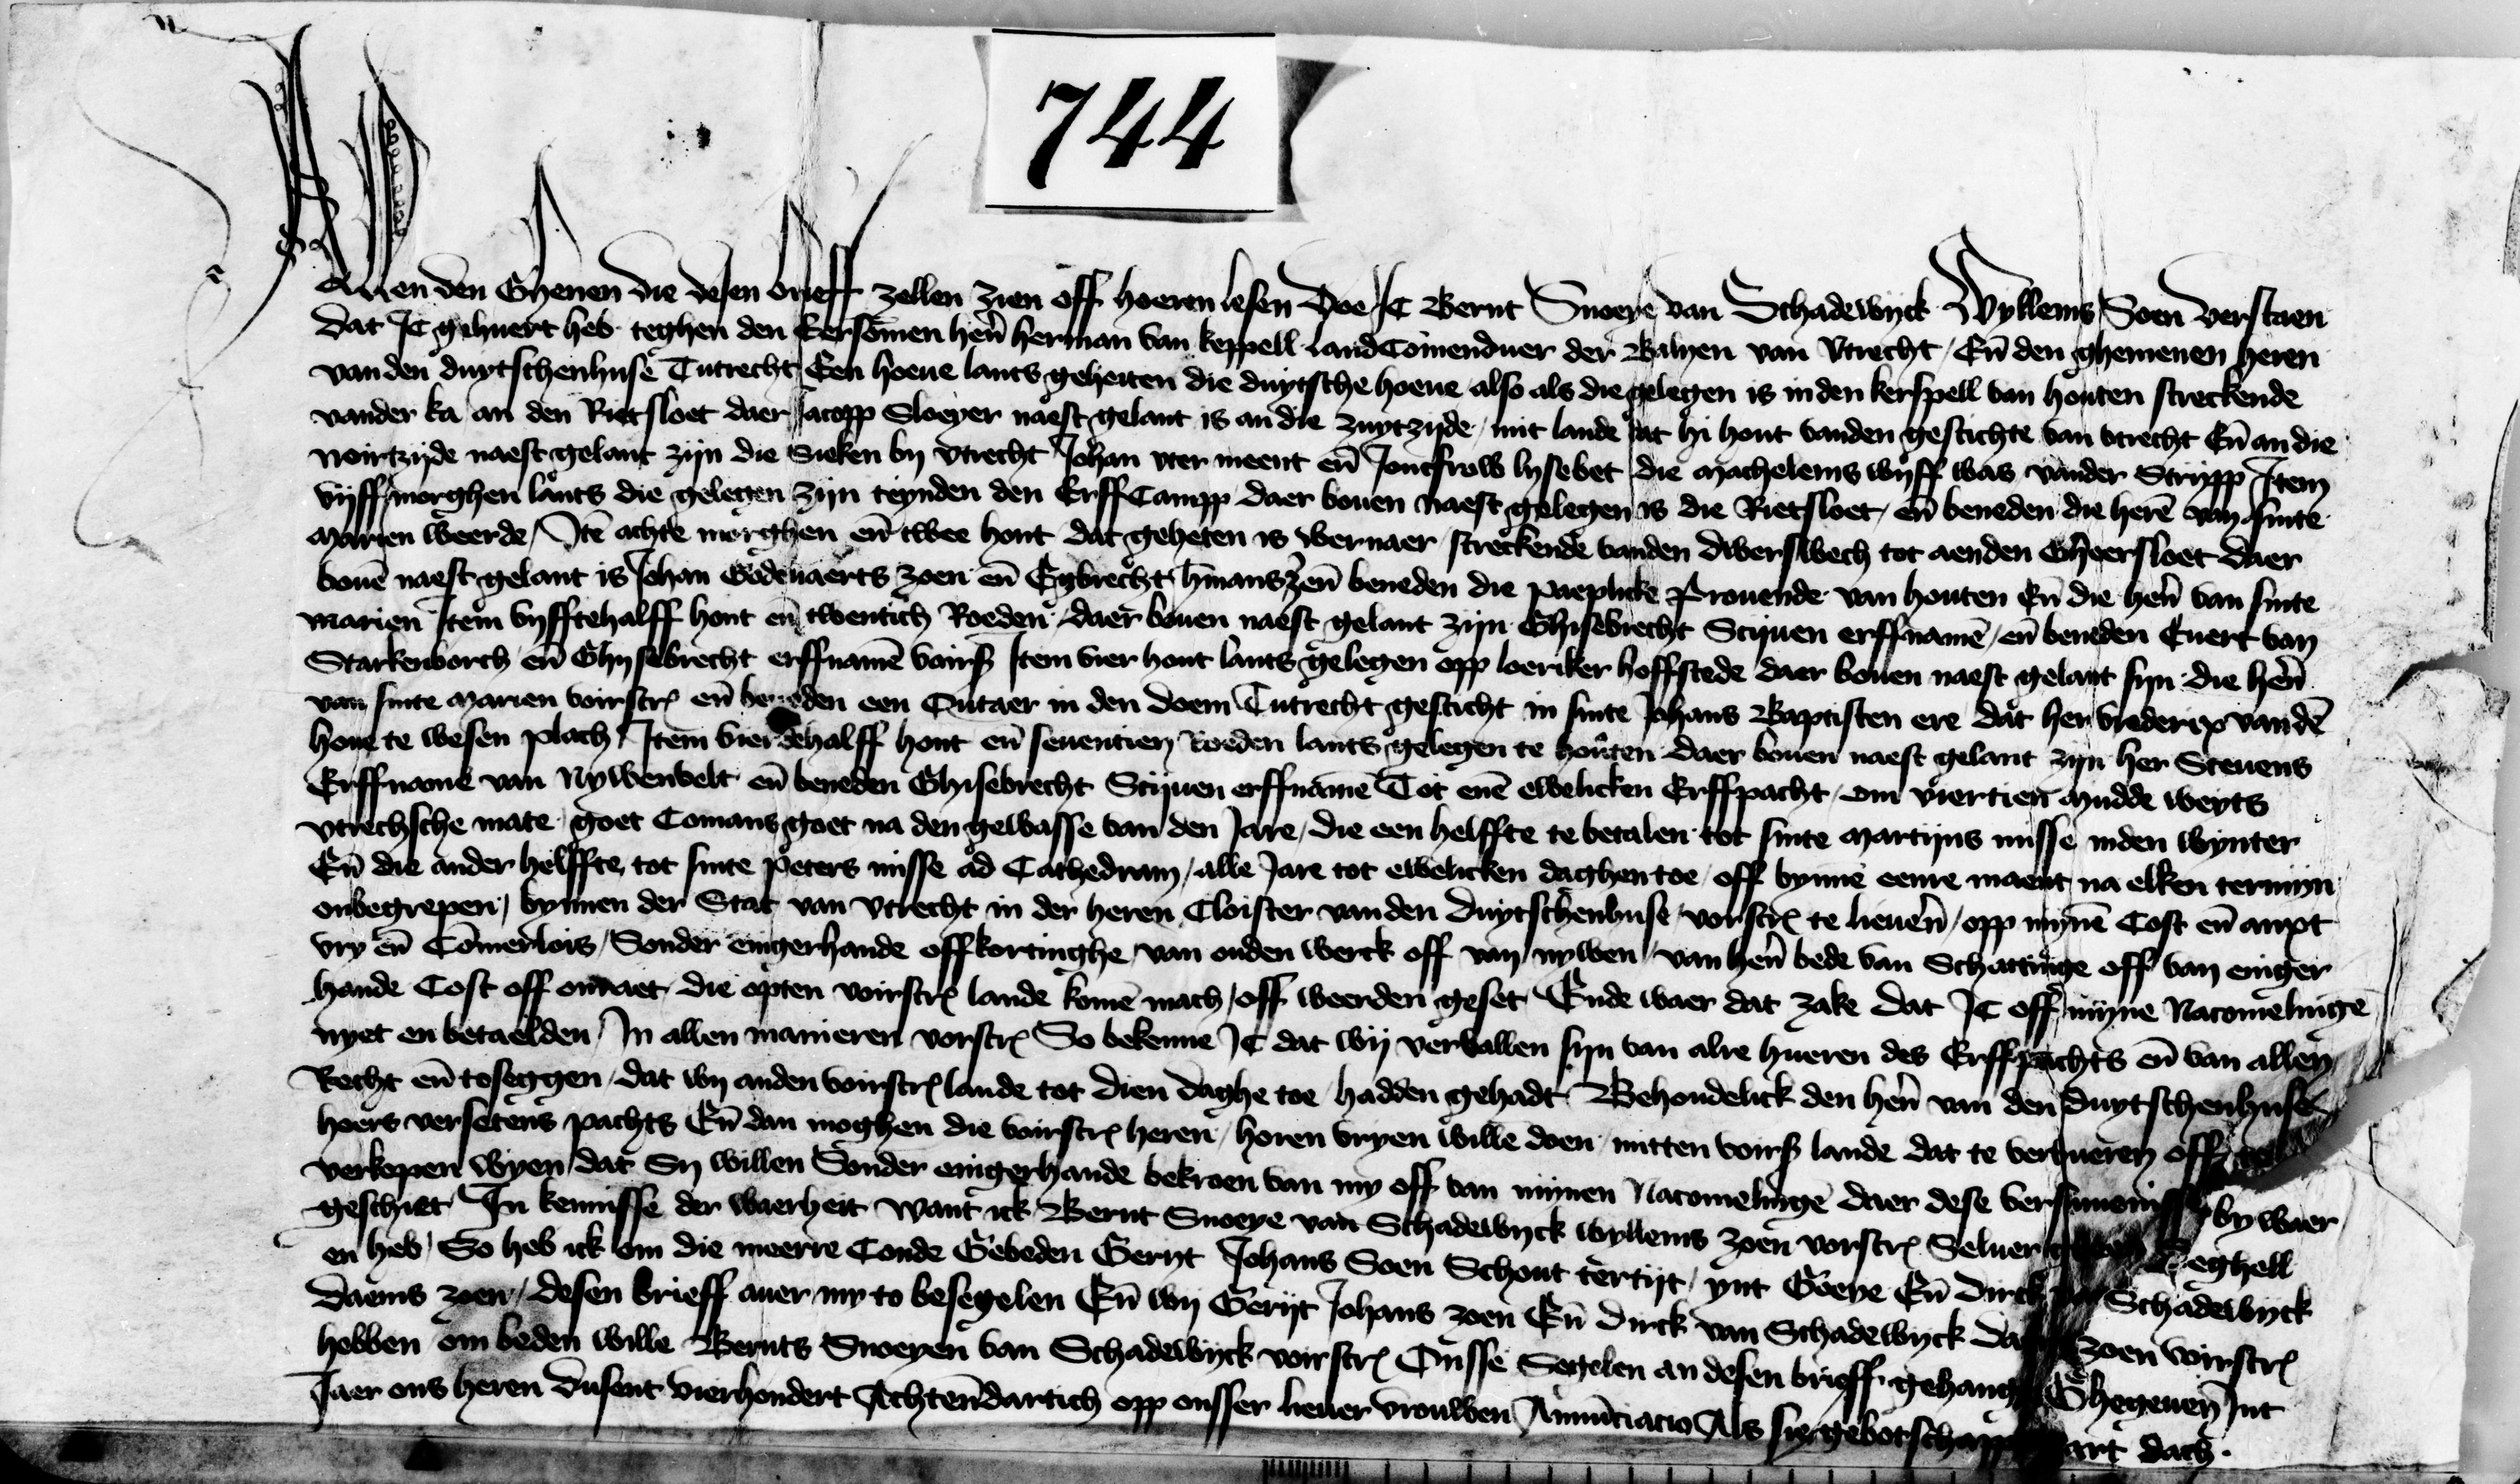 744
Allen den Ghenen die desen brieff zellen zien off hoeren lesen Doe Ic Bernt Snoeye van Schadewijck Wyllems Soen verstaen
dat Ic gehuert heb teghen den Eersomen hern herman van keppell landComenduer der Balyen van Vtrecht / En̄ den ghemenen heren
vanden duytschenhuse Tutrecht Een hoeue lants geheiten die duytsche hoeue also als die gelegen is inden kerspell van houten streckende
vander ka an den Rietsloet daer Jacopp Sloeyer naest gelant is an die zuytzijde mit lande dat hi hout vanden gestichte van vtrecht En̄ an die
noirtzijde naest gelant zijn die Sieken by vtrecht Johan vter meent en̄ Joncfrow lysebet die Machelems wijff was vander Strypp Item
vijff morghen lants die gelegen zijn teynden den ErffCampp daer bouen naest gelegen is die Rietsloet / en̄ beneden die herē van sinte
Marien weerde / Itē achte morghen en̄ twee hont dat geheten is wernaer streckende vanden dwerswech tot aenden Gheersloet daer
bouē naest gelant is Johan Godeuaerts zoen en̄ Eybrecht hmans z en̄ beneden die paeplicke Prouende van houten En̄ die hern̄ van sinte
marien Item vyfftehalff hont en̄ twentich Roeden daer bouen naest gelant zijn Ghisebrecht Stijuen erffnamē / en̄ beneden Euert van
Starkenborch en̄ Ghysebrecht erffnamē voirs Item vier hont lants gelegen opp loeriker hoffstede daer bouen naest gelant sijn die hern̄
van sinte Marien voirscr en̄ beneden een Outaer in den doem Tutrecht gesticht in sinte Johans Baptisten ere dat her vrederix vandē
houe te wesen plach / Item vierdehalff hont en̄ seuentien Roeden lants gelegen te houten daer bouen naest gelant zijn her Steuens
Erffname van Nywenvelt en̄ beneden Ghisebrecht Stijuen erffnamē Tot enē ewelicken Erffpacht / om viertien mudde weyts
vtrechsche mate goet Comans goet na den gewasse van den Jare / die een helffte te betalen tot sinte Martijns misse inden wynter
En̄ die ander helffte tot sinte peters misse ad Cathedram / alle Jare tot ewelicken daghen toe / off bynnē eenre maent na elken termijn
onbegrepen / bynnen der Stat van vtrecht in der heren Cloister vanden duytschenhuse vorscr te lieuern̄ / opp mynē Cost en̄ anxt
vry en̄ Comerlois / Sonder enigerhande offkortinghe van ouden werck off van nywen / van hern̄ bede van Schattinge off van eniger
hande Cost off onraet die opten voirscr lande komē mach / off weerden geset Ende waer dat zake dat Ic off mijne Nacomelinge
nyet en betaelden / In allen manieren vorscr So bekenne Ic dat wij vervallen sijn van alre hueren des Erffpachts en̄ van allen
Recht en̄ toseggen / dat wy anden voirscr lande tot dien daghe toe hadden gehadt Behoudelick den hern̄ van den duytschenhuse
hoers versetens pachts En̄ dan moghen die voirscr heren / horen vryen wille doen mitten voirs lande dat te verhueren off te
verkopen wyen dat Sy willen Sonder enigerhande bekroen van my off van mijnen Nacomelingē daer dese versumeniss by waer
geschiet In kennisse der waerheit want ick Bernt Snoeye van Schadewyck wyllems zoen vorscr Seluer Seghell
en heb / So heb ick om die meerre Conde Gebeden Geryt Johans Soen Schout tertijt / ynt Goeye En̄ Dirck Schadewijck
daems zoen / desen brieff auer my to besegelen En̄ wij Gerijt Johans zoen En̄ dirck van Schadewyck zoen voirscr
hebben om beden wille Bernts Snoeyen van Schadewijck voirscr Onsse Segelen an desen brieff Ghegeuen Int
Jaer ons heren dusent vierhondert Achten̄dartich opp onsser lieuer vrouwen Annūciacio Als dach.